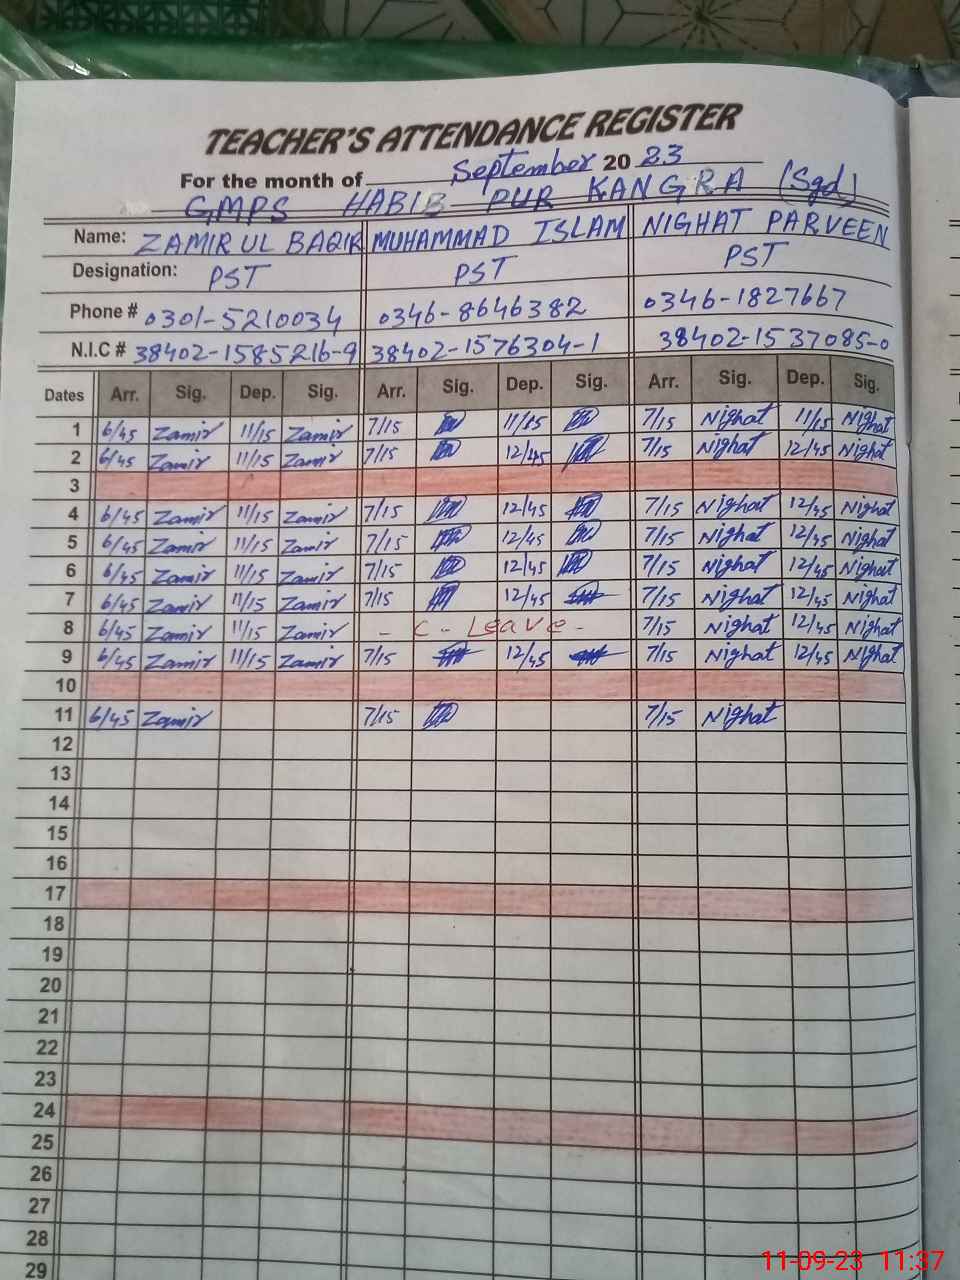 TEACHER'S ATTENDANCE REGISTER
For the month of September 20 23
GMPS HABIB PUR KANGRA (Sgd)
Name: ZAMIR UL BAQIR MUHAMMAD ISLAM NIGHAT PARVEEN
Designation: PST PST PST
Phone # 0301-5210034 0346-8646382 0346-1827667
N.I.C # 38402-1585216-9 38402-1576304-1 38402-1537085-0
Dates Arr. Sig. Dep. Sig. Arr. Sig. Dep. Sig. Arr. Sig. Dep. Sig.
1 6/45 Zamir 11/15 Zamir 7/15 11/15 7/15 Nighat 11/15 Nighat
2 6/45 Zamir 11/15 Zamir 7/15 12/45 7/15 Nighat 12/45 Nighat
3
4 6/45 Zamir 11/15 Zamir 7/15 12/45 7/15 Nighat 12/45 Nighat
5 6/45 Zamir 11/15 Zamir 7/15 12/45 7/15 Nighat 12/45 Nighat
6 6/45 Zamir 11/15 Zamir 7/15 12/45 7/15 Nighat 12/45 Nighat
7 6/45 Zamir 11/15 Zamir 7/15 12/45 7/15 Nighat 12/45 Nighat
8 6/45 Zamir 11/15 Zamir - C - Leave - 7/15 Nighat 12/45 Nighat
9 6/45 Zamir 11/15 Zamir 7/15 12/45 7/15 Nighat 12/45 Nighat
10
11 6/45 Zamir 7/15 7/15 Nighat
12
13
14
15
16
17
18
19
20
21
22
23
24
25
26
27
28
29
11-09-23 11:37